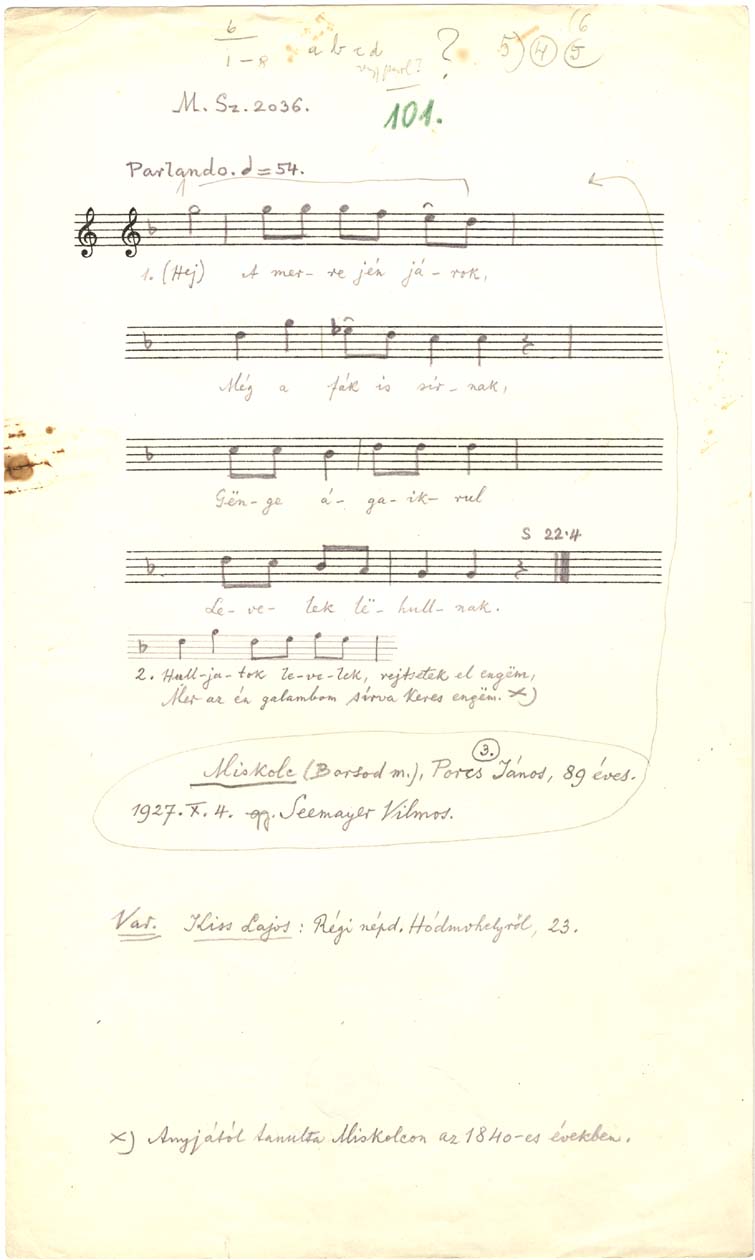 6
1-8 a b c d ? 5) 4 5 6
vagy parl?
M. Sz. 2036.
101.
Parlando. = 54.
1. (Hej) A mer- re jén já- rok,
Még a fák is sir- nak,
Gën- ge á- ga- ik- rul
S 22.4
Le- ve- lek lë- hull- nak.
2. Hull-ja-tok le-ve-lek, rejtsetek el engëm,
Mer az én galambom sírva keres engëm. x)
3.
Miskolc (Borsod m.), Porcs János, 89 éves.
1927. X. 4. gy. Seemayer Vilmos.
Var. Kiss Lajos: Régi népd. Hódmvhelyről, 23.
x) Anyjától tanulta Miskolcon az 1840-es években.